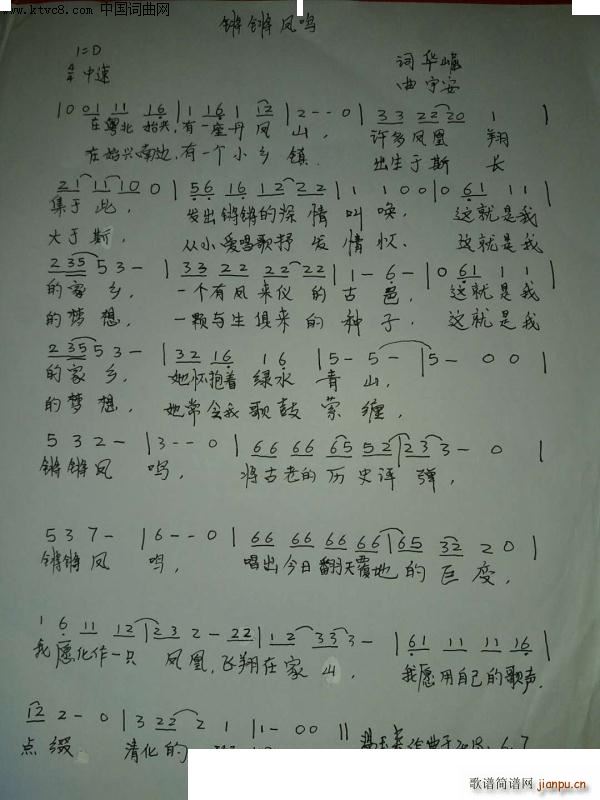 www.ktvc8.com 中国词曲网
锵锵凤鸣
1=D
4/4 中速
词 华
曲 宇安
|0 01 11 16|1 16 1 12|2--0|33 22 20 1|
在粤北 抬头,有一座丹凤山, 许多凤凰 翔
在始兴南边,有一个小乡镇. 出生于斯 长
21 11 10 0|56 16 12 22|1 1 00|0 61 11|
集于此, 发出锵锵的深情叫唤, 这就是我
大于斯, 从小爱唱歌抒发情怀. 这就是我
235 53-|33 22 22 22|1-6-|0 61 11|
的家乡, 一个有凤来仪的古邑, 这就是我
的梦想, 一颗与生俱来的种子. 这就是我
235 53-|32 16 16|5-5-|5-00|
的家乡, 她怀抱着绿水青山,
的梦想, 她常令我歌鼓萦缠,
532-|3--0|66 66 65 52|23 3-0|
锵锵凤鸣, 将古老的历史评弹,
537-|6--0|66 66 66 66|65 32 20|
锵锵凤鸣, 唱出今日翻天覆地的巨变,
16 11 12|23 2-22|12 33 3-|61 11 11 16|
我愿化作一只凤凰,飞翔在家山, 我愿用自己的歌声,
12 2-0|3 22 2 1|1-00||
点缀 清化的
作曲于2013.6.7
歌谱简谱网
jianpu.cn